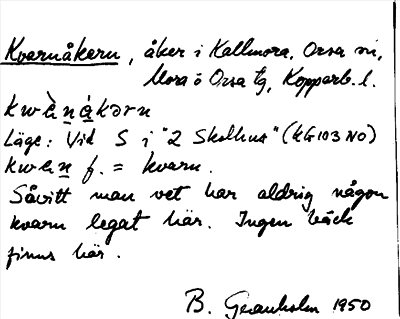 Kvarnåkern, åker i Kallmora, Orsa sn,
Mora o Orsa tg, Kopparb. l.
kwὲn̲ ákərn
Läge: Vid S i "2 Skolhus" (KG 103 NO)
kwεn̲ f. = kvarn.
Såvitt man vet har aldrig någon
kvarn legat här. Ingen bäck
finns här.
B. Granholm 1950